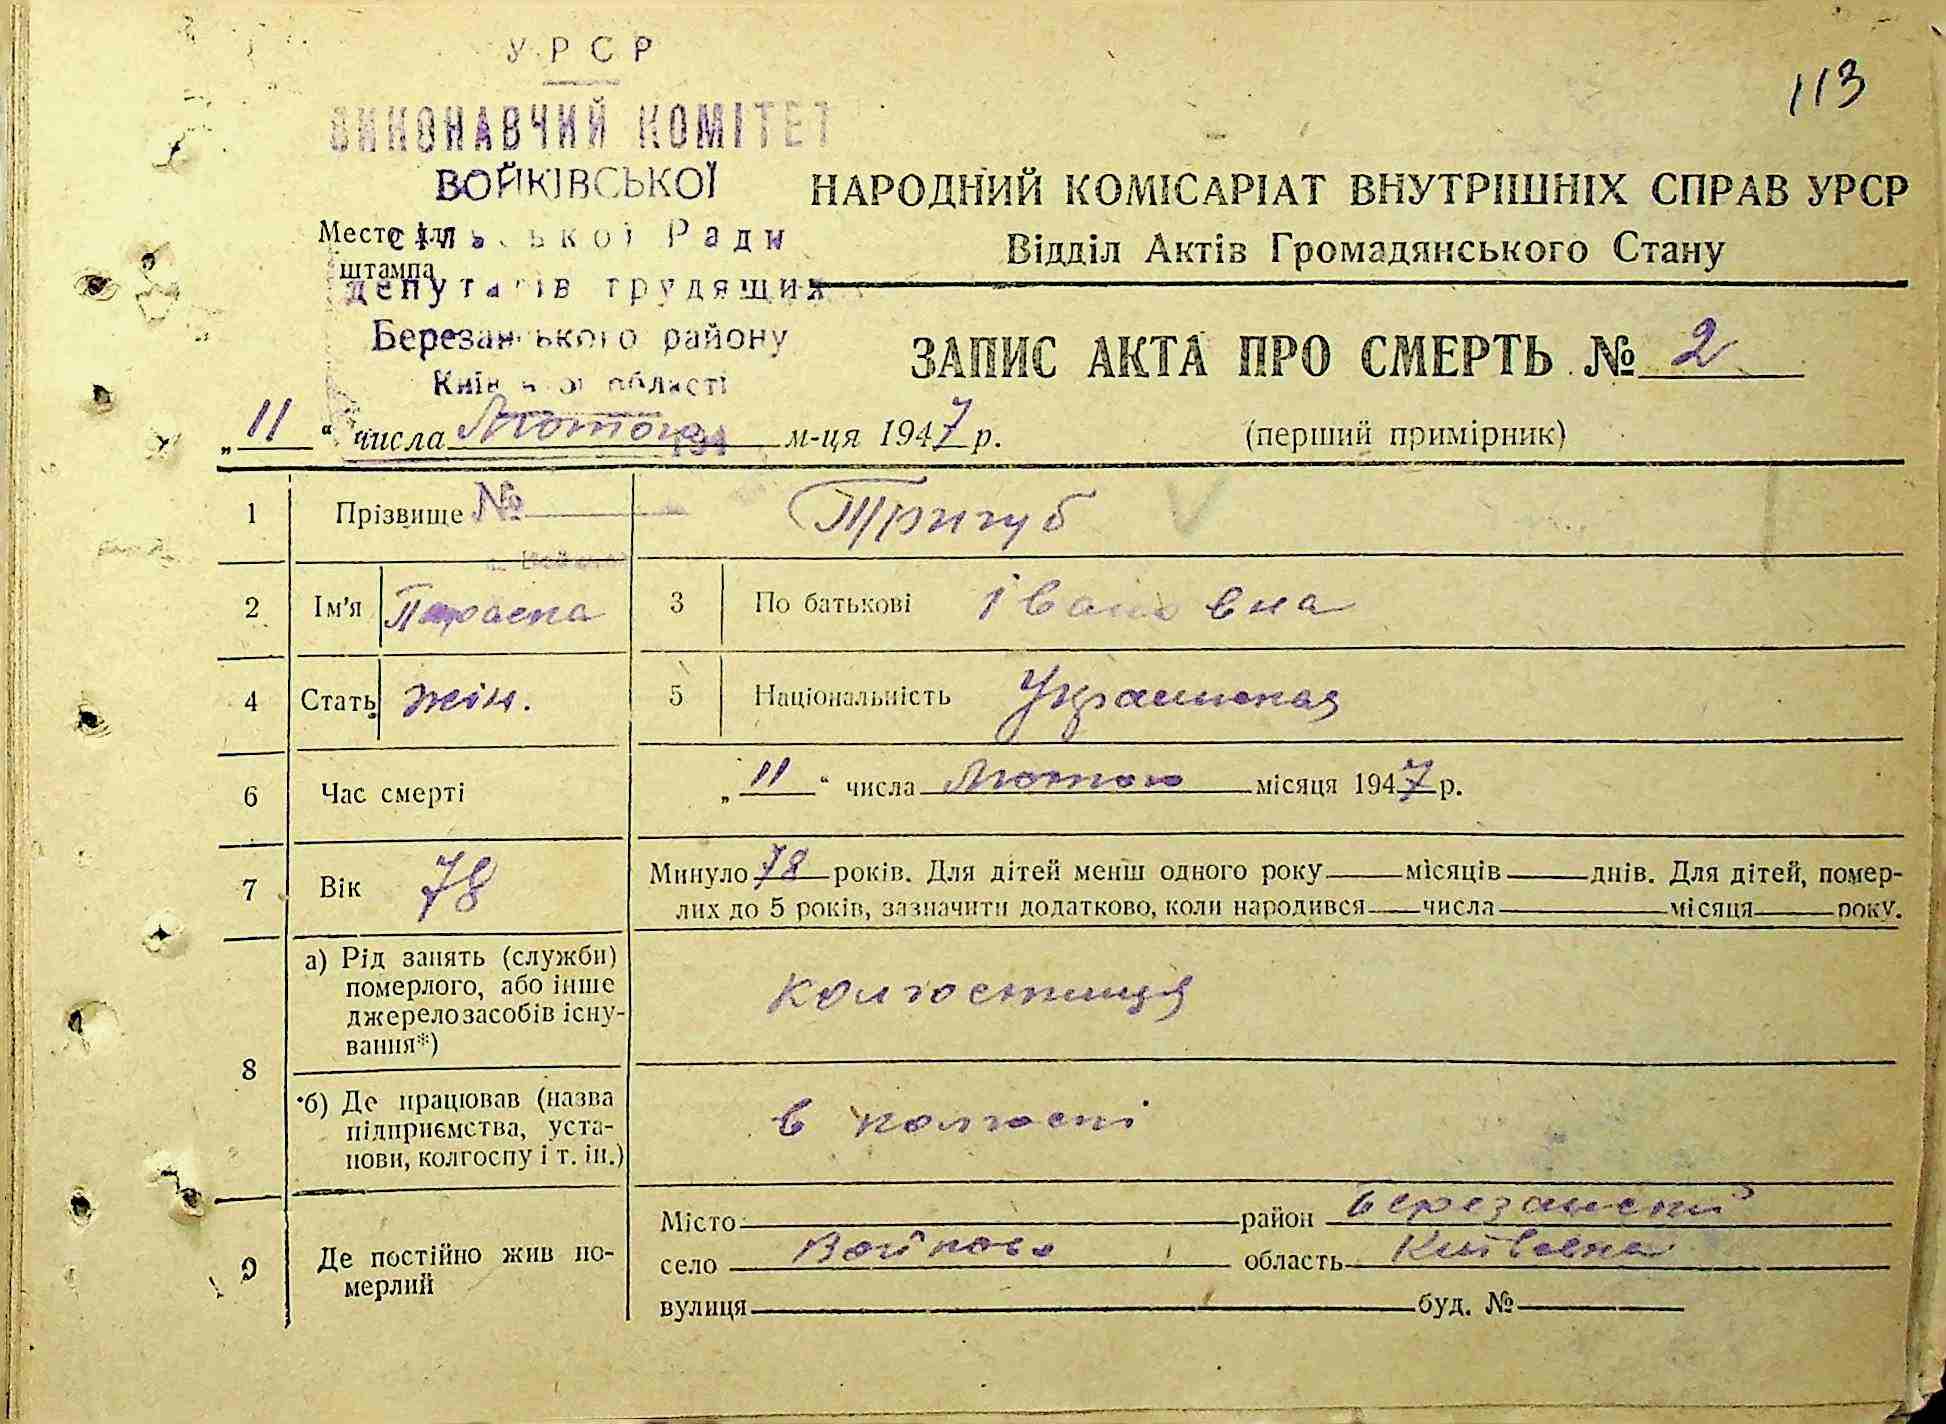 УРСР
113
ВИКОНАВЧИЙ КОМІТЕТ
ВОЙКІВСЬКОЇ
НАРОДНИЙ КОМІСАРІАТ ВНУТРІШНІХ СПРАВ УРСР
Место для сільської Ради
Відділ Актів Громадянського Стану
штампа
депутатів трудящих
Березанського району
ЗАПИС АКТА ПРО СМЕРТЬ № 2
Київської області
„11“ числа Лютого м-ця 1947 р.
(перший примірник)
194
1 Прізвище № Тригуб
2 Ім'я Параска 3 По батькові Івановна
4 Стать жін. 5 Національність Украинская
6 Час смерті „11“ числа Лютого місяця 1947 р.
7 Вік 78 Минуло 78 років. Для дітей менш одного року місяців днів. Для дітей, помер-
лих до 5 років, зазначити додатково, коли народився числа місяця року.
8 а) Рід занять (служби)
померлого, або інше
джерело засобів існу-
вання*)
колгоспниця
б) Де працював (назва
підприємства, уста-
нови, колгоспу і т. ін.)
в колгоспі
9 Де постійно жив по-
мерлий
Місто район Березанский
село Войково область Київска
вулиця буд. №